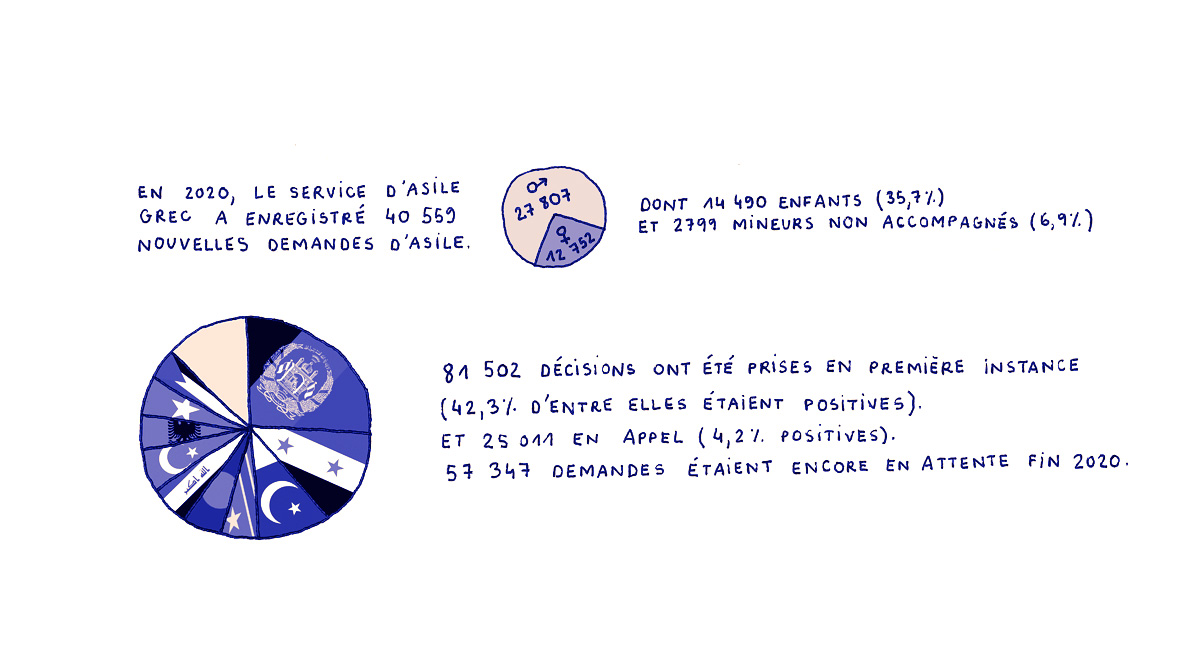 EN 2020, LE SERVICE D'ASILE
GREC A ENREGISTRÉ 40 559
NOUVELLES DEMANDES D'ASILE.
♂
27 807
♀
12 752
DONT 14 490 ENFANTS (35,7%)
ET 2799 MINEURS NON ACCOMPAGNÉS (6,9%)
81 502 DÉCISIONS ONT ÉTÉ PRISES EN PREMIÈRE INSTANCE
(42,3% D'ENTRE ELLES ÉTAIENT POSITIVES).
ET 25 011 EN APPEL (4,2% POSITIVES).
57 347 DEMANDES ÉTAIENT ENCORE EN ATTENTE FIN 2020.